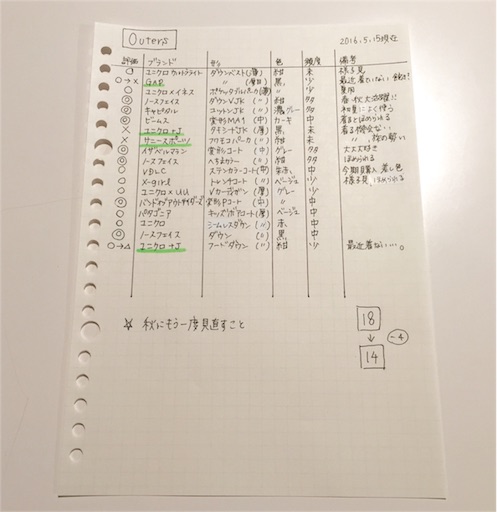 Outers
2016.5.15現在
評価 ブランド 型 色 頻度 備考
○ ユニクロウルトラライト ダウンベスト(薄) 紺 未 様子見
○→× GAP 〃 (厚) 黒 ソ 最近着ていない
○ ユニクロ×イネス ポケッタブルパーカ(薄) 〃 ソ 夏用
◎ ノースフェイス ダウンVJK (〃) 紺 多 春・秋大活躍!!
◎ キャピタル コットンJK (〃) 濃グレー 多 初夏によく使う
◎ ビームス 変形MA1 (中) カーキ 中 着るとほめられる
× ユニクロ+J (厚) 黒 未 着る機会ない…
× サニースポーツ (〃) 紺 未
◎ イザベルマラン 変形コート (中) グレー 多 大大大好き
◎ ノースフェイス (〃) 紺 多 ほめられる
○ ステンカラーコート(中) 中 今期購入 差し色
○ X-girl トレンチコート (〃) ベージュ ソ 様子見 ほめられる
○ ユニクロ×UU (厚) グレー ソ
◎ バンドオブアウトサイダーズ 変形Pコート (中) 〃 中
○ パタゴニア キッズボアコート(厚) ベージュ 中
○ ユニクロ シームレスダウン (〃) 赤 中
◎ ノースフェイス ダウン (〃) 黒 中
○→△ ユニクロ+J フードダウン (〃) 紺 ソ 最近着ない…。
☆ 秋にもう一度見直すこと
18
↓ -4
14